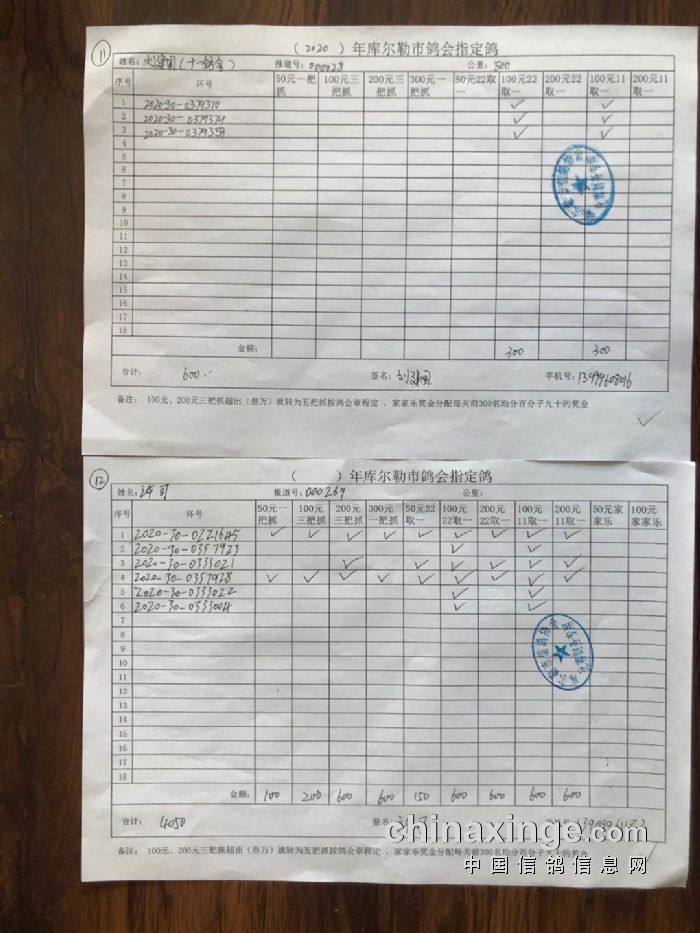 11
(2020) 年库尔勒市鸽会指定鸽
姓名: 报道号: 000028 公里: 500
序号 环号 50元一把抓 100元三把抓 200元三把抓 300元一把抓 50元22取一 100元22取一 200元22取一 100元11取一 200元11取一
1 2020-30-0379370 ✓ ✓
2 2020-30-0379374 ✓ ✓
3 2020-30-0379359 ✓ ✓
4
5
6
7
8
9
10
11
12
13
14
15
16
17
18
金额: 300 300
合计: 600 签名: 手机号: 13999608016
备注: 100元、200元三把抓超出(叁万)就转为五把抓按鸽会章程定 、家家乐奖金分配每关前300名均分百分子九十的奖金
✓
12
( ) 年库尔勒市鸽会指定鸽
姓名: 许可 报道号: 000269 公里:
序号 环号 50元一把抓 100元三把抓 200元三把抓 300元一把抓 50元22取一 100元22取一 200元22取一 100元11取一 200元11取一 50元家家乐 100元家家乐
1 2020-30-0221645 ✓ ✓ ✓ ✓ ✓ ✓ ✓ ✓ ✓
2 2020-30-0357923 ✓ ✓
3 2020-30-0333021 ✓ ✓ ✓ ✓ ✓ ✓
4 2020-30-0357928 ✓ ✓ ✓ ✓ ✓ ✓ ✓ ✓ ✓
5 2020-30-0333022 ✓ ✓
6 2020-30-0333004 ✓ ✓
7
8
9
10
11
12
13
14
15
16
17
18
金额: 100 200 600 600 150 600 600 600 600
合计: 4050 签名:
chinaxinge.com
备注: 100元、200元三把抓超出(叁万)就转为五把抓按鸽会章程定 、家家乐奖金分配每关前300名均分百分子九十的奖金
中国信鸽信息网